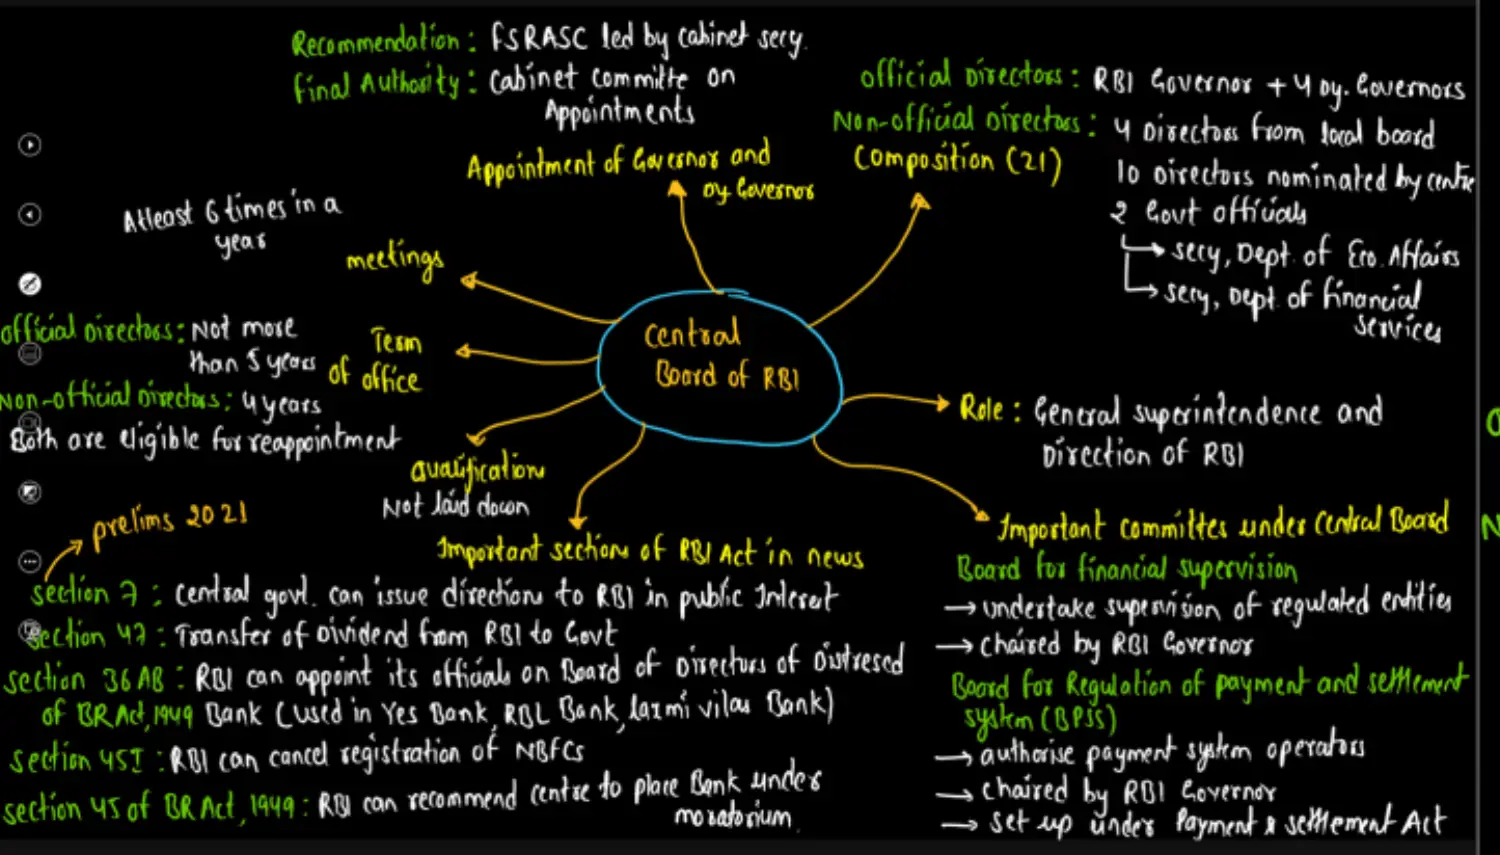 Recommendation : FSRASC led by cabinet secy.
Final Authority : Cabinet Committe on
Appointments
Appointment of Governor and
Dy Governor
Official Directors : RBI Governor + 4 Dy. Governors
Non-official Directors : 4 Directors from local board
Composition (21)
10 Directors nominated by centre
2 Govt officials
→ secy, Dept. of Eco. Affairs
→ secy, Dept. of Financial
Services
Atleast 6 times in a
year
meetings
official Directors : Not more
than 5 years
Term
of office
Non-official Directors : 4 years
Both are eligible for reappointment
Central
Board of RBI
Role : General superintendence and
Direction of RBI
Qualification
Not laid down
prelims 2021
Important sections of RBI Act in news
section 7 : Central govt. can issue directions to RBI in public Interest
section 47 : Transfer of Dividend from RBI to Govt
section 36AB : RBI can appoint its officials on Board of Directors of Distresed
of BR Act, 1949 Bank (used in Yes Bank, RBL Bank, laxmi vilas Bank)
section 45I : RBI can cancel registration of NBFCs
section 45 of BR Act, 1949 : RBI can recommend centre to place Bank under
moratorium
Important committes under Central Board
Board for financial supervision
→ undertake supervision of regulated entities
→ chaired by RBI Governor
Board for Regulation of payment and settlement
system (BPSS)
→ authorise payment system operators
→ chaired by RBI Governor
→ set up under Payment & settlement Act